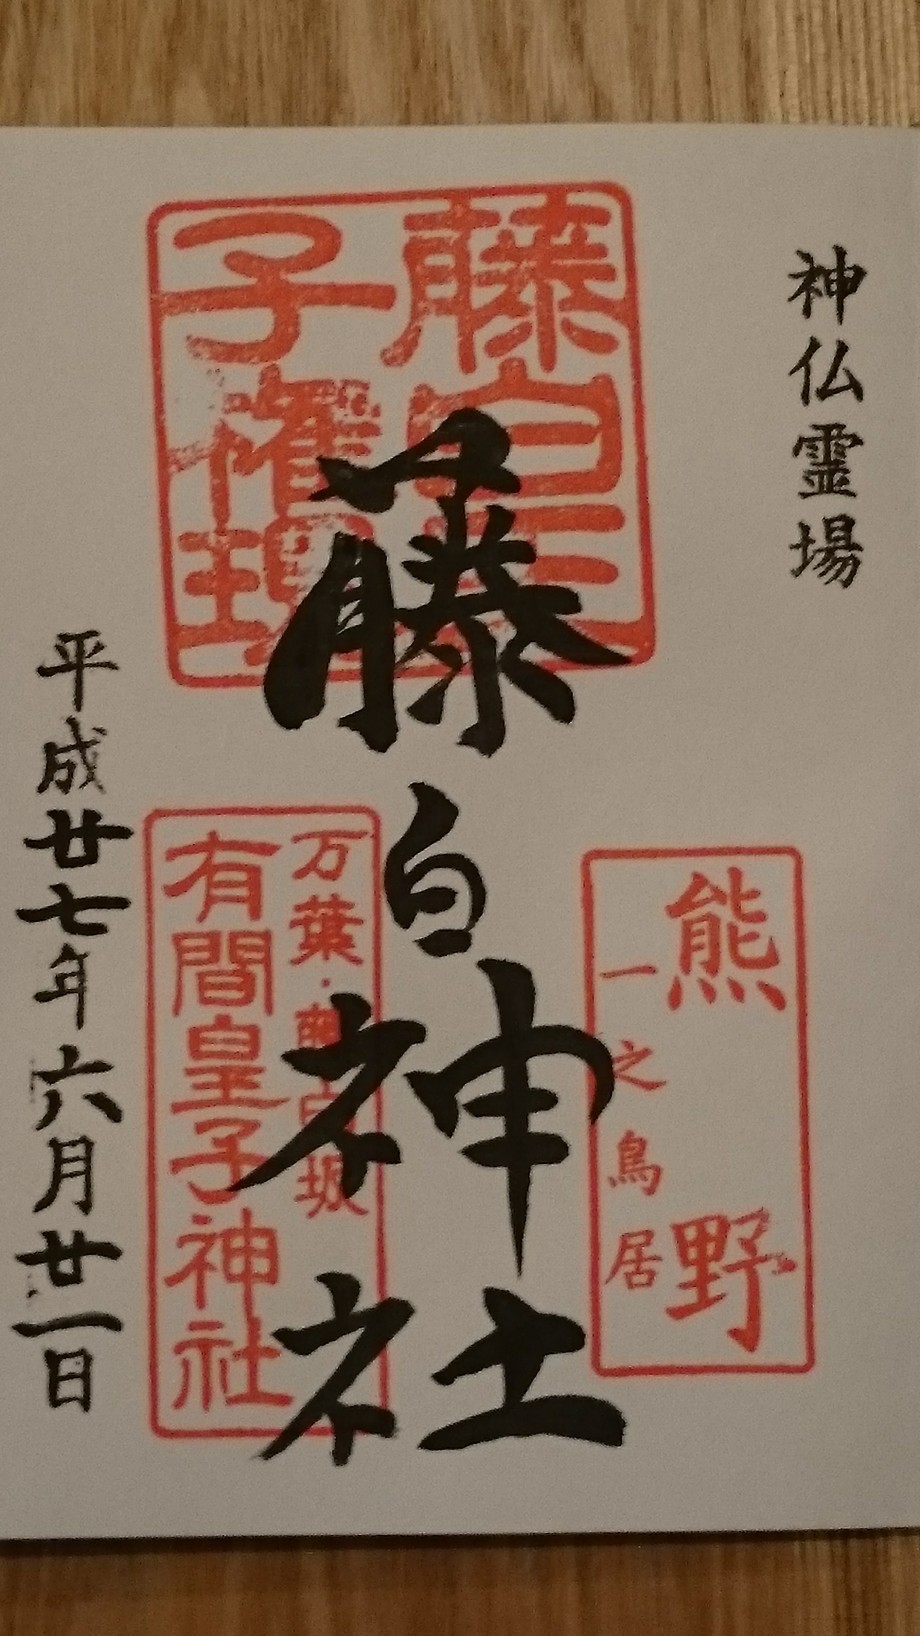 神仏霊場
熊野
一之鳥居
藤白王
子権現
藤白神社
万葉・藤白坂
有間皇子神社
平成廿七年六月廿一日